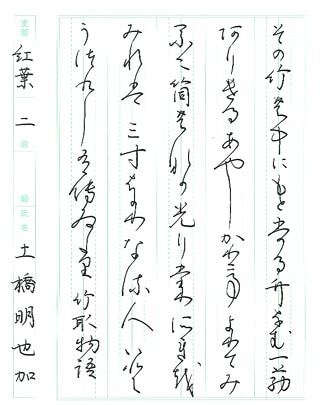 その竹の中にもと光る竹なむ一筋
ありけるあやしかりてよりてみ
るに筒のなか光りたりそれを
みれは三寸はかりなる人いと
うつくしうてゐたり 竹取物語
支部 紅葉 二 段 級 氏名 土橋明也加